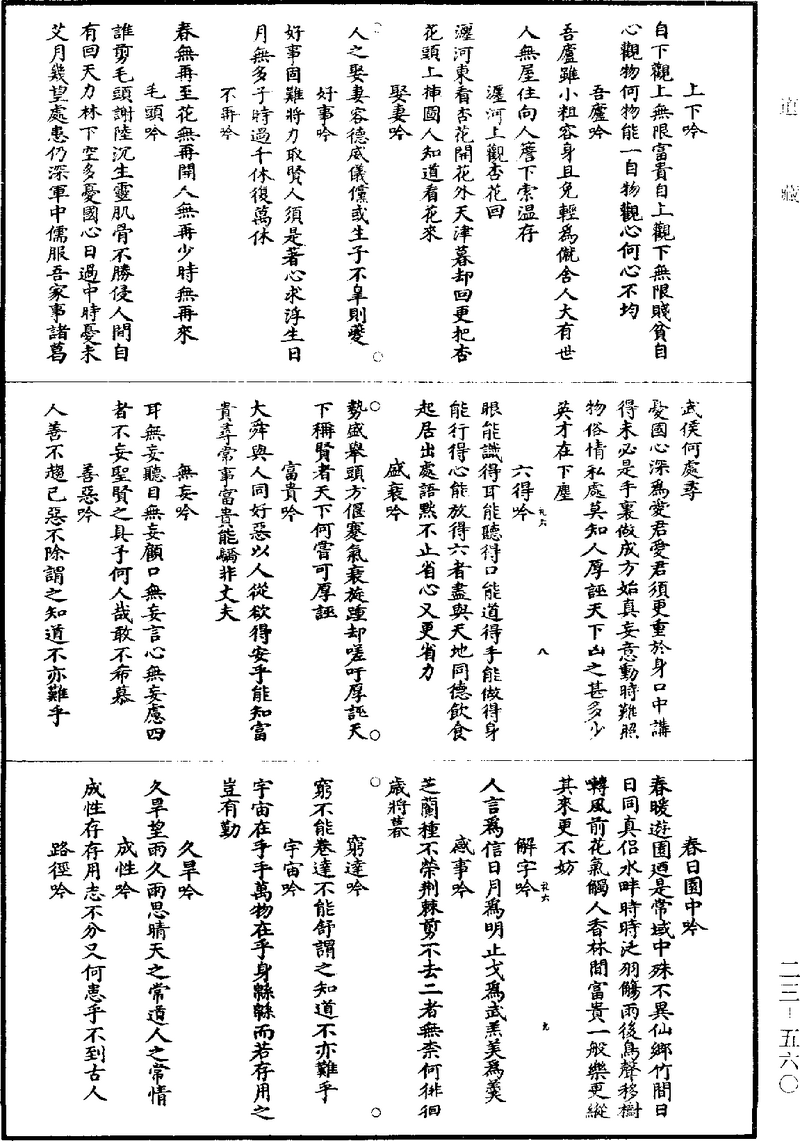 道藏
上下吟
自下觀上無限富貴自上觀下無限賤貧自
心觀物何物能一自物觀心何心不均
吾廬吟
吾廬雖小粗容身且免輕爲僦舍人大有世
人無屋住向人簷下索温存
瀍河上觀杏花回
瀍河東看杏花開花外天津暮却回更把杏
花頭上插圖人知道看花來
娶妻吟
人之娶妻容德威儀儻或生子不臯則夔
好事吟
好事固難將力取賢人須是著心求浮生日
月無多子時過千休復萬休
不再吟
春無再至花無再開人無再少時無再來
毛頭吟
誰剪毛頭謝陸沉生靈肌骨不勝侵人間自
有回天力林下空多憂國心日過中時憂未
艾月幾望處患仍深軍中儒服吾家事諸葛
武侯何處尋
憂國心深爲愛君愛君須更重於身口中講
得未必是手裏做成方始真妄意動時難照
物俗情私處莫知人厚誣天下凶之甚多少
英才在下塵
六得吟
眼能識得耳能聽得口能道得手能做得身
能行得心能放得六者盡與天地同德飲食
起居出處語默不止省心又更省力
盛衰吟
勢盛舉頭方偃蹇氣衰旋踵却嗟吁厚誣天
下稱賢者天下何嘗可厚誣
富貴吟
大舜與人同好惡以人從欲得安乎能知富
貴尋常事富貴能驕非丈夫
無妄吟
耳無妄聽目無妄顧口無妄言心無妄慮四
者不妄聖賢之具予何人哉敢不希慕
善惡吟
人善不趨己惡不除謂之知道不亦難乎
春日園中吟
春暖遊園迺是常域中殊不異仙鄉竹間日
日同真侣水畔時時泛羽觴雨後鳥聲移樹
囀風前花氣觸人香林間富貴一般樂更縱
其來更不妨
解字吟
人言爲信日月爲明止戈爲武羔美爲羹
感事吟
芝蘭種不榮荆棘剪不去二者無柰何徘徊
歲將暮
窮達吟
窮不能卷達不能舒謂之知道不亦難乎
宇宙吟
宇宙在乎手萬物在乎身緜緜而若存用之
豈有勤
久旱吟
久旱望雨久雨思晴天之常道人之常情
成性吟
成性存存用志不分又何患乎不到古人
路徑吟
二三－五六〇